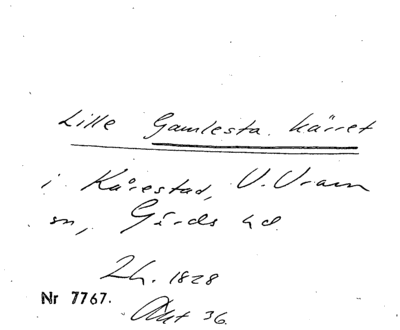 Lille Gamlesta. kärret
i Kårestad, V. Vram
sn, Gärds hd.
Lh. 1828
Nr 7767.
Akt 36.